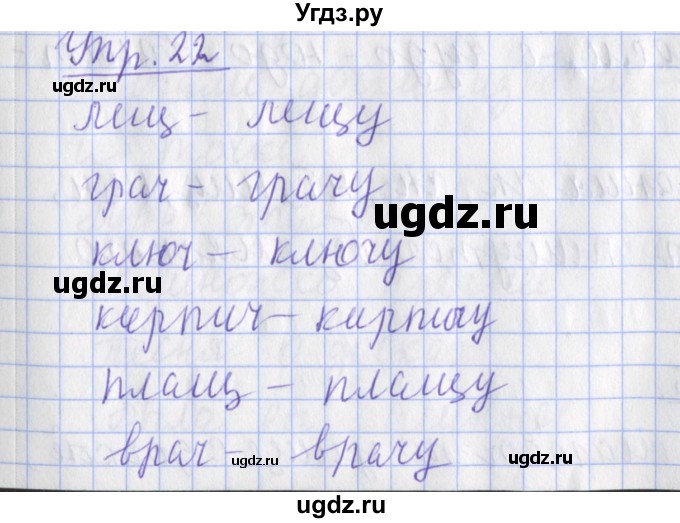 Угдз.ру
Упр. 22
ugdz.ru
ugdz.ru
лещ - лещу
грач - грачу
ugdz.ru
ключ - ключу
ugdz.ru
ugdz.ru
кирпич - кирпичу
плащ - плащу
врач - врачу
ugdz.ru
ugdz.ru
ugdz.ru